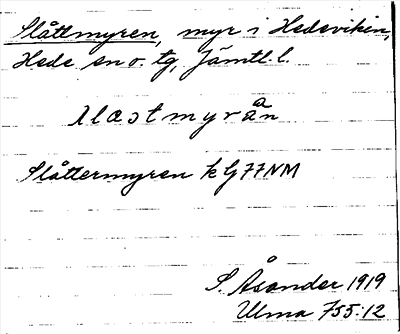 Slåttmyren, myr i Hedeviken,
Hede sn o. tg, Jämtl. l.
Slåttermyren k G77NM
S. Åsander 1919
Ulma 755:12